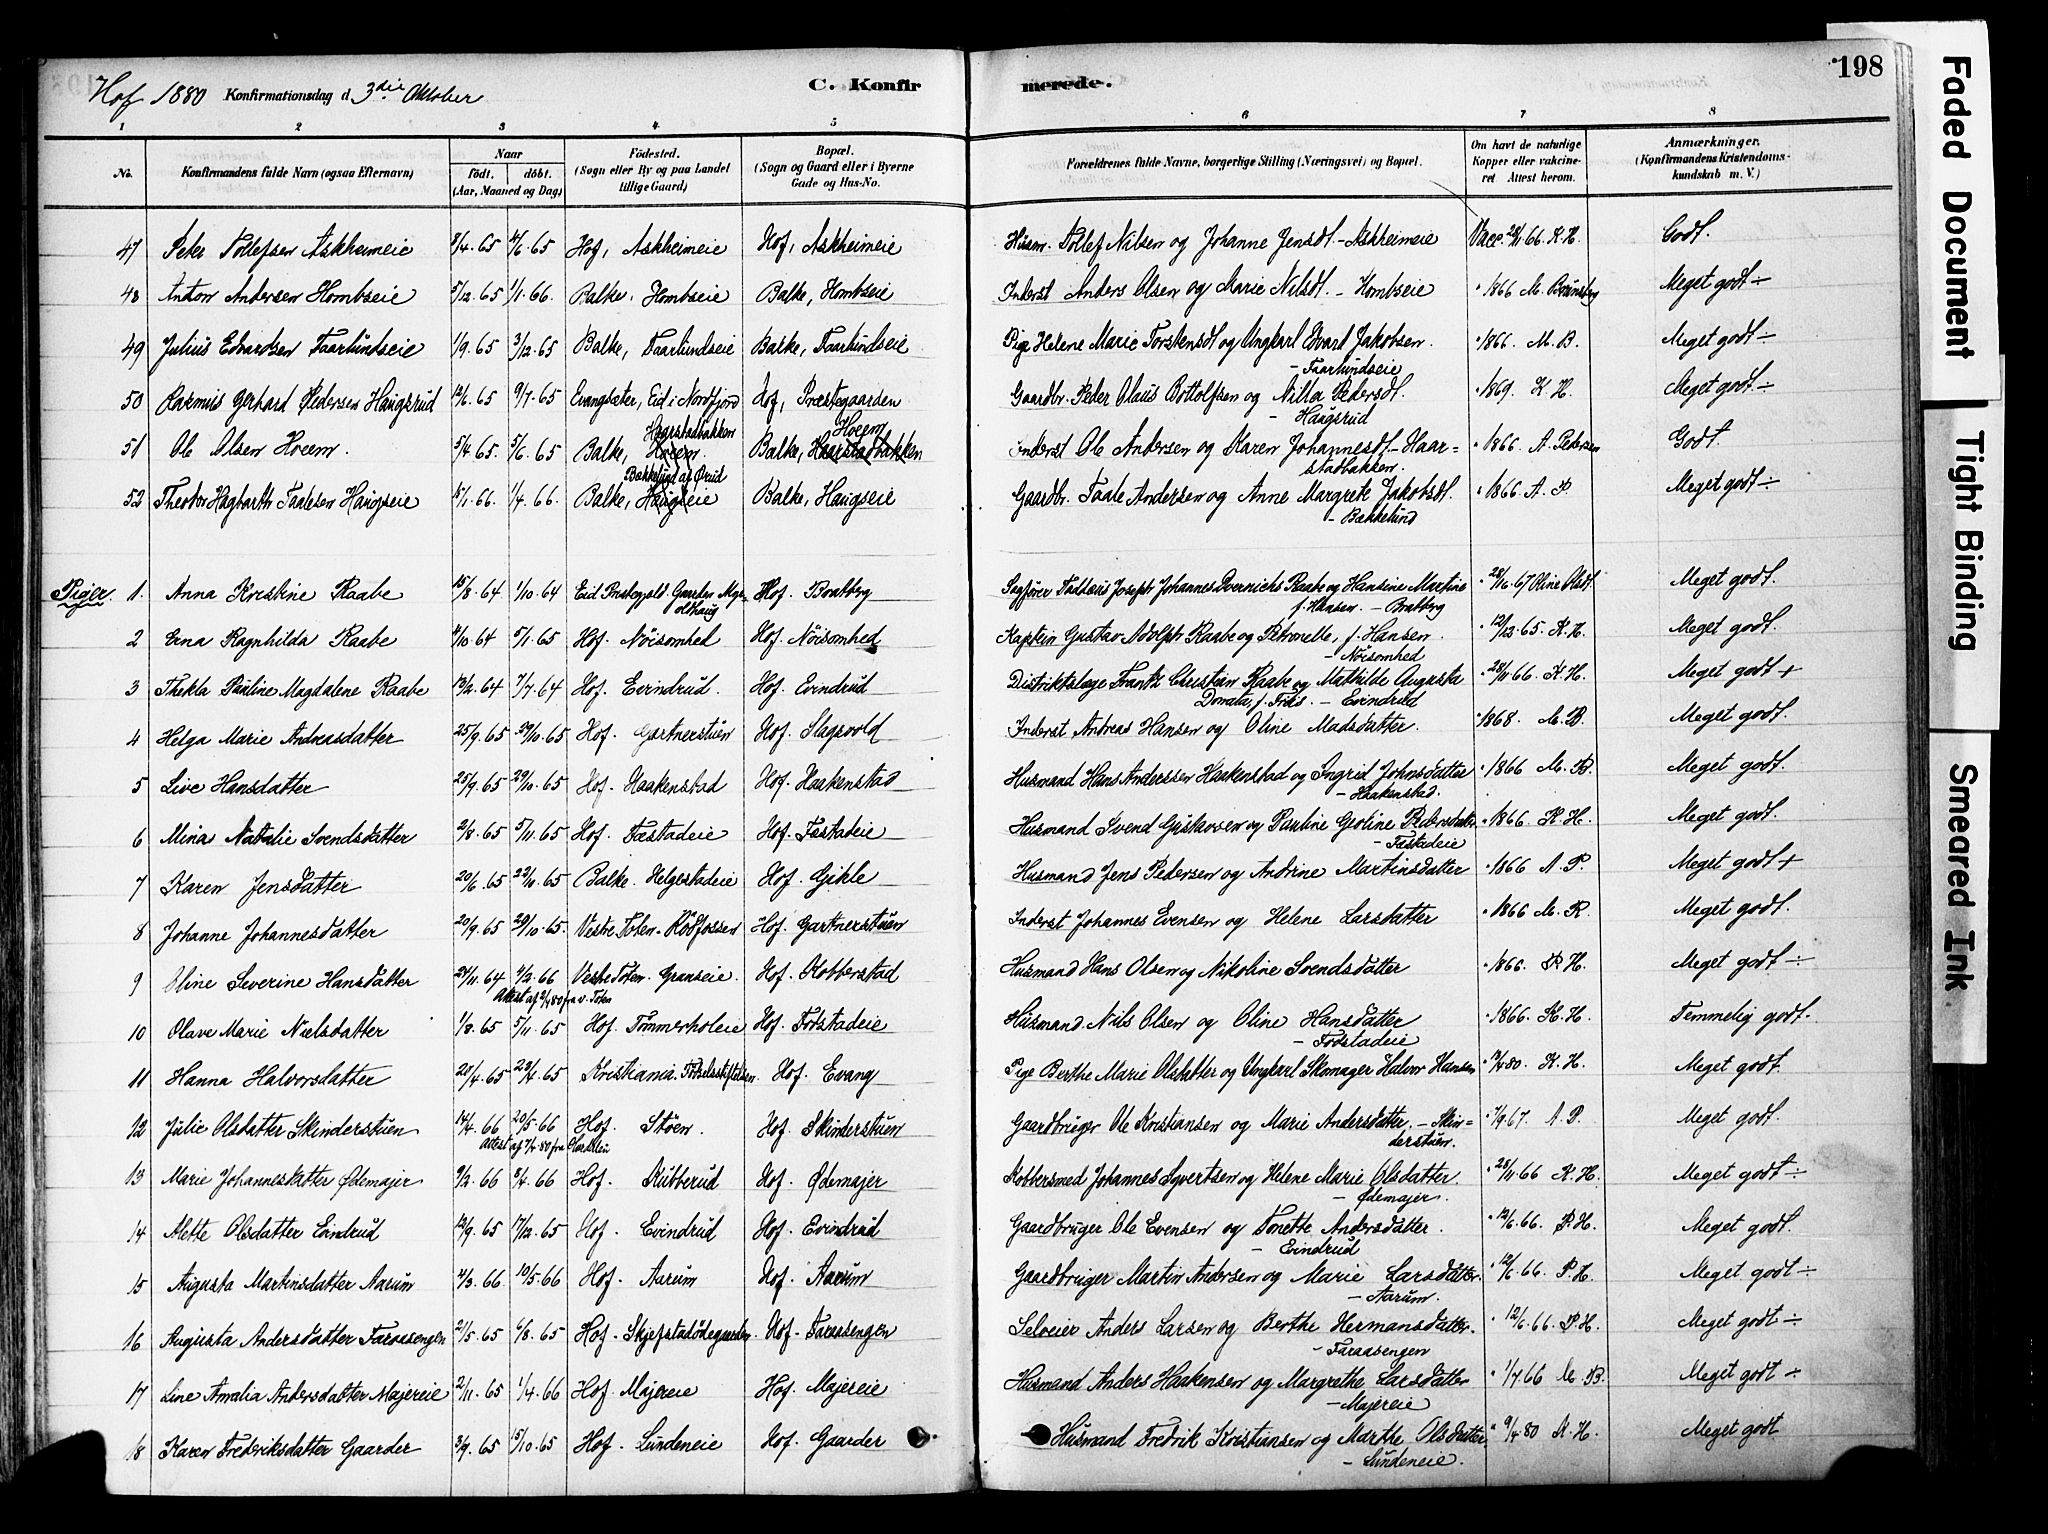 198
Hof 1880 Konfirmationsdag d. 3die Oktober C. Konfirmerede.
1 2 3 4 5 6 7 8
No. Konfirmandens fulde Navn (ogsaa Efternavn) Naar födt. döbt. (Aar, Maaned og Dag) Födested. (Sogn eller By og paa Landet tillige Gaard) Bopæl. (Sogn og Gaard eller i Byerne Gade og Hus-No. Forældrenes fulde Navne, borgerlige Stilling (Næringsvei) og Bopæl. Om havt de naturlige Kopper eller vakcineret Attest herom. Anmærkninger. (Konfirmandens Kristendomskundskab m. V.)
47 Peter Tollefsen Askheimeie 8/4.65 4/6.65 Hof, Askheimeie Hof, Askheimeie Husm. Tollef Nilsen og Johanne Jensdt. - Askheimeie Vacc. 28/11 66. K.H. Godt.
48 Anton Andersen Hombseie 5/12.65 1/1.66. Balke, Hombseie Balke, Hombseie Inderst Anders Olsen og Marie Nilsdt. - Hombseie " 1866 M. Meget godt ÷
49 Julius Edvardsen Taarlundseie 1/9.65 3/12.65 Balke, Taarlundseie Balke, Taarlundseie Pige Helene Marie Torstensdt og Ungkarl Edvart Jakobsen. " 1866. M.B. Meget godt ÷
- Taarlundseie
50 Rasmus Gerhard Pedersen Haugsrud 12/6.65 9/7.65 Evangsæter, Eid i Nordfjord Hof, Præstegaarden Gaardbr. Peter Olaus Bottolfsen og Nilla Pedersdt. " 1869. K.H. Meget godt ÷
- Haugsrud
Haarstadbakken Hoeem
51 Ole Olsen Hoeem. 5/4 65. 5/6.65 Balke, Hoeem. Balke, Haarstadbakken Inderst Ole Andersen og Karen Johannesdt. - Haar= " 1866 A. Pedersen Godt.
stadbakken.
Bækkelund af Ørud
52 Theodor Hagbarth Taalesen Haugseie 8/1.66. 1/4.66. Balke, Haugseie Balke, Haugseie Gaardbr. Taale Andersen og Anne Margrete Jakobsdt. " 1866 A.P. Meget godt ÷
- Bækkelund
Piger. 1. Anna Kristine Raabe 15/8.64 1/10.64 Eid Præstegjeld. Gaarden Myr- Hof. Bratberg Sagförer Taddæus Joseph Johannes Raabe og Hansine Martine " 28/16.67 Oline Olsdt Meget godt.
olthaug f. Hansen. - Bratberg
2 Erna Ragnhilda Raabe 4/10 64 5/1.65 Hof. Nöisomhed Hof. Nöisomhed Kaptein Gustav Adolph Raabe og Petronelle, f. Hansen. " 12/12.65. K.H. Meget godt.
- Nöisomhed
3 Thekla Pauline Magdalene Raabe 13/2.64 7/7.64 Hof. Evindrud. Hof. Evindrud Distriktslæge Frantz Christian Raabe og Mathilde Augusta " 28/11.66. K.H. Meget godt +
Donata, f. Friis. - Evindrud
4 Helga Marie Andreasdatter 25/9.65 29/10.65 Hof. Gartnerstuen Hof. Slagsvold Inderst Andreas Hansen og Oline Madsdatter. " 1868. M.B. Meget godt.
5 Live Hansdatter 25/9.65 29/10.65 Hof. Haakenstad Hof. Haakenstad Husmand Hans Anderssen Haakenstad og Ingrid Johnsdatter " 1866 M.B. Meget godt.
- Haakenstad.
6 Mina Natalie Svendsdatter 2/8.65 5/11.65 Hof. Tæstadeie Hof. Tæstadeie Husmand Svend Gustavsen og Pauline Geoline Pedersdatter " 1866 K.H. Meget godt.
- Tæstadeie
7 Karen Jensdatter 20/6 65 22/10.65 Balke. Helgestadeie Hof. Gihle Husmand Jens Pedersen og Andrine Martinsdatter " 1866 A.P. Meget godt +
8 Johanne Johannesdatter 20/9.65 29/10.65. Vestre Toten - Rödfossen Hof. Gartnerstuen Inderst Johannes Evensen og Helene Larsdatter " 1866 M.R. Meget godt.
9 Oline Severine Hansdatter 24/11.64 4/2.66 Vestre Toten. Granseie. Hof. Kobberstad Husmand Hans Olsen og Nikoline Svendsdatter " 1866. P.H. Meget godt ÷
Attest af 2/4 80 fra v. Toten
10 Olave Marie Nielsdatter 1/8.65 5/11.65 Hof. Tömmerholeie Hof. Fodstadeie Husmand Nils Olsen og Oline Hansdatter " 1866. K.H. Temmelig godt.
- Fodstadeie
11 Hanna Halvorsdatter 20/4.65 23/4.65 Kristiania. Födselsstiftelsen. Hof. Evang Pige Berthe Marie Olsdatter og Ungkarl Skomager Halvor Hansen " 12/4 80. K.H. Meget godt.
12 Julie Olsdatter Skinderstuen 14/4.66 20/5.66 Hof. Stöen. Hof. Skinderstuen Gaardbruger Ole Kristiansen og Marie Andersdatter. - Skin= " 7/9 67. A.P. Meget godt.
Attest af 7/4.80 fra derstuen.
13 Marie Johannesdatter Ødemajer 9/2.66 8/4.66 Hof. Kubberud Hof. Ødemajer Kobbersmed Johannes Syvertsen og Helene Marie Olsdatter. " 28/11 66 K.H. Meget godt ÷
- Ødemajer.
14 Mette Olsdatter Evindrud 12/9.65 17/12.65 Hof. Evindrud Hof. Evindrud Gaardbruger Ole Evensen og Tonette Andersdatter. " 12/6.66. P.H. Meget godt.
- Evindrud
15 Augusta Martinsdatter Aarum 4/3.66 10/5.66 Hof. Aarum Hof. Aarum Gaardbruger Martin Andersen og Marie Larsdatter. " 12/6.66. P.H. Meget godt ÷
- Aarum.
16 Augusta Andersdatter Faraasengen 2/5.65 6/8.65 Hof. Skjefstadödegaarden. Hof. Faraasengen Selveier Anders Larsen og Berthe Hermansdatter. " 12/6.66. P.H. Meget godt ÷
- Faraasengen
17 Line Amalia Andersdatter Majereie 2/11.65 1/4.66 Hof. Majereie Hof. Majereie Husmand Anders Haakensen og Margrethe Larsdatter " 1/7.66 M.B. Meget godt ÷
- Majereie
18 Karen Frederiksdatter Gaarder 3/9.65 15/10.65 Hof. Lundeneie Hof. Gaarder Husmand Fredrik Kristiansen og Marthe Olsdatter " 9/4 80 K.H. Meget godt
- Lundeneie.
Faded Document
Tight Binding
Smeared Ink